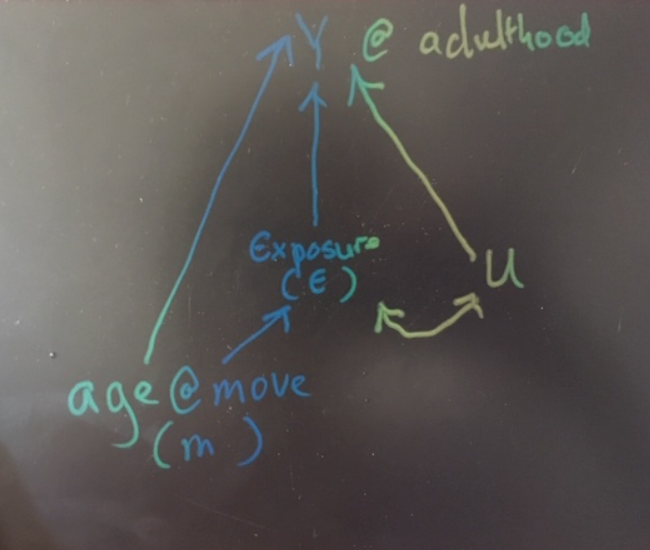 Y @ adulthood
Exposure
(E)
U
age @ move
(m)